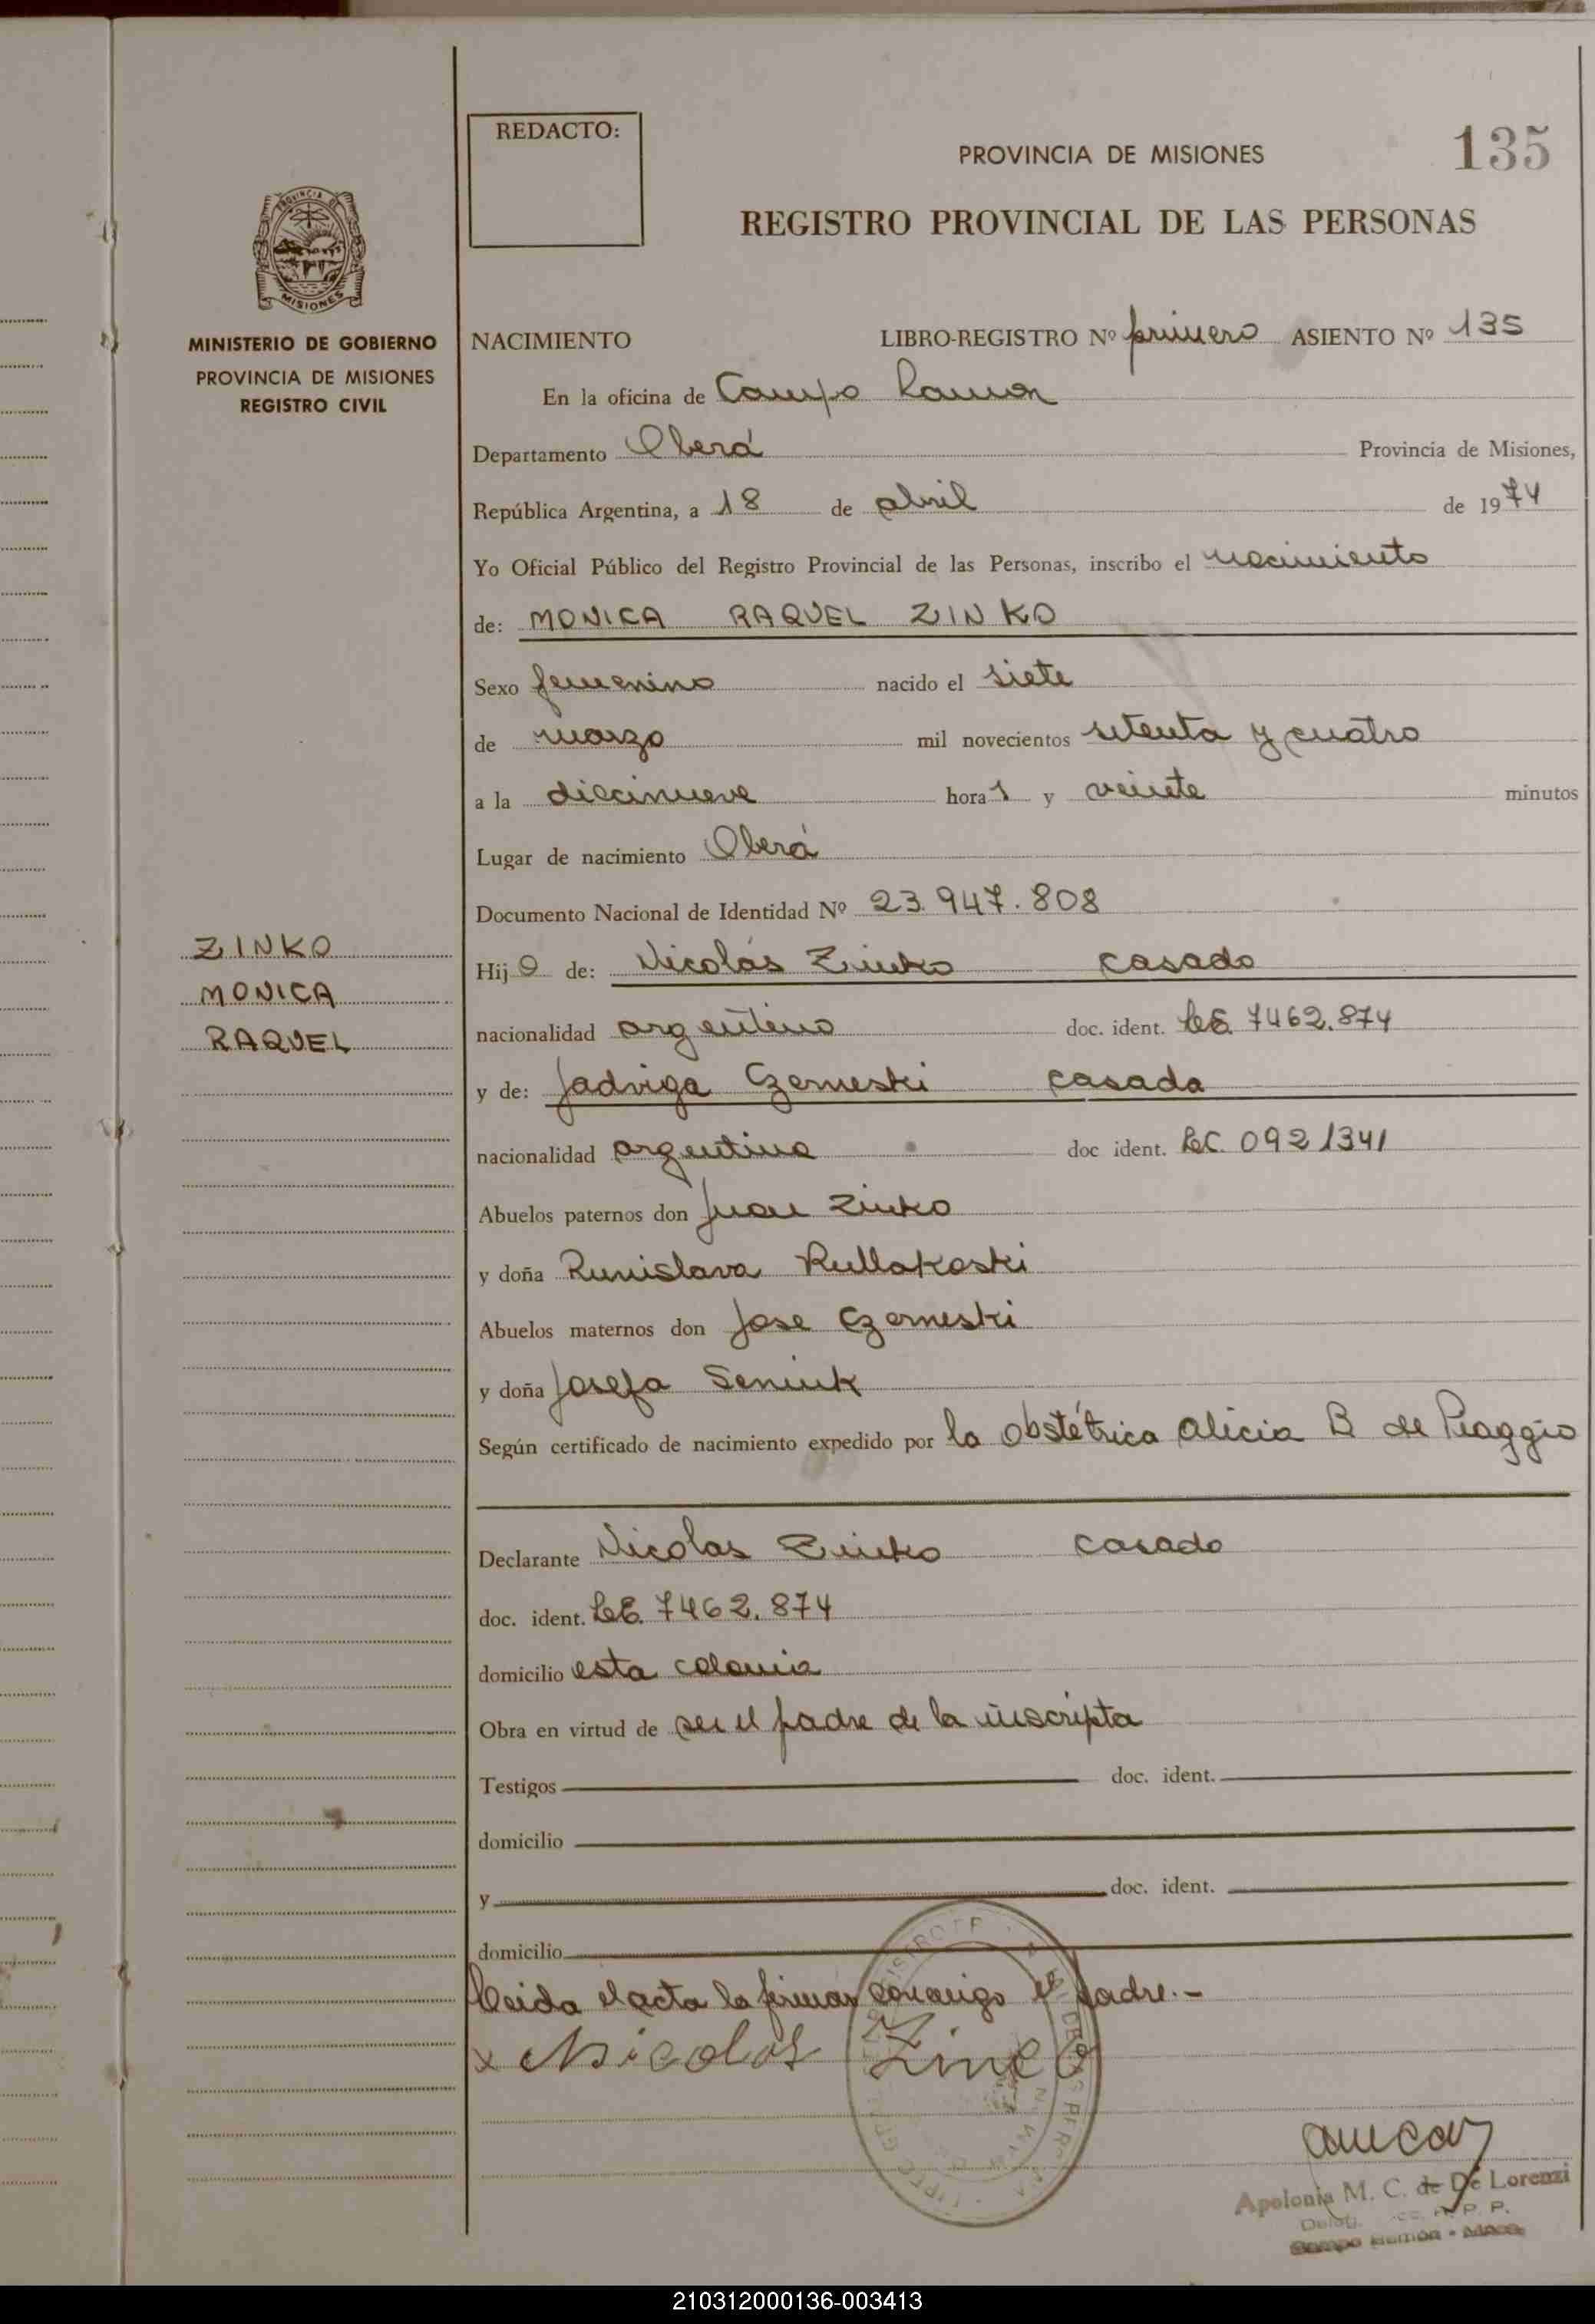 REDACTO:
PROVINCIA DE MISIONES
135
REGISTRO PROVINCIAL DE LAS PERSONAS
PROVINCIA DE
MISIONES
MINISTERIO DE GOBIERNO
PROVINCIA DE MISIONES
REGISTRO CIVIL
NACIMIENTO LIBRO-REGISTRO Nº primero ASIENTO Nº 135
En la oficina de Campo Ramon
Departamento Oberá Provincia de Misiones,
República Argentina, a 18 de abril de 1974
Yo Oficial Público del Registro Provincial de las Personas, inscribo el nacimiento
de: MONICA RAQUEL ZINKO
Sexo femenino nacido el siete
de marzo mil novecientos setenta y cuatro
a la diecinueve horas y veinte minutos
Lugar de nacimiento Oberá
Documento Nacional de Identidad Nº 23.947.808
ZINKO
MONICA
RAQUEL
Hija de: Nicolás Zinko casado
nacionalidad argentino doc. ident. LE. 7462.874
y de: Jadviga Czerneski casada
nacionalidad argentina doc ident. LC. 0921341
Abuelos paternos don Juan Zinko
y doña Runislava Kullakoski
Abuelos maternos don Jose Czerneski
y doña Josefa Seniuk
Según certificado de nacimiento expedido por la obstétrica Alicia B de Piaggio
Declarante Nicolas Zinko casado
doc. ident. LE. 7462.874
domicilio esta colonia
Obra en virtud de ser el padre de la inscripta
Testigos doc. ident.
domicilio
y doc. ident.
domicilio
Leida el acta la firman conmigo el padre.-
x Nicolas Zinco
Apolonia M. C. de De Lorenzi
210312000136-003413